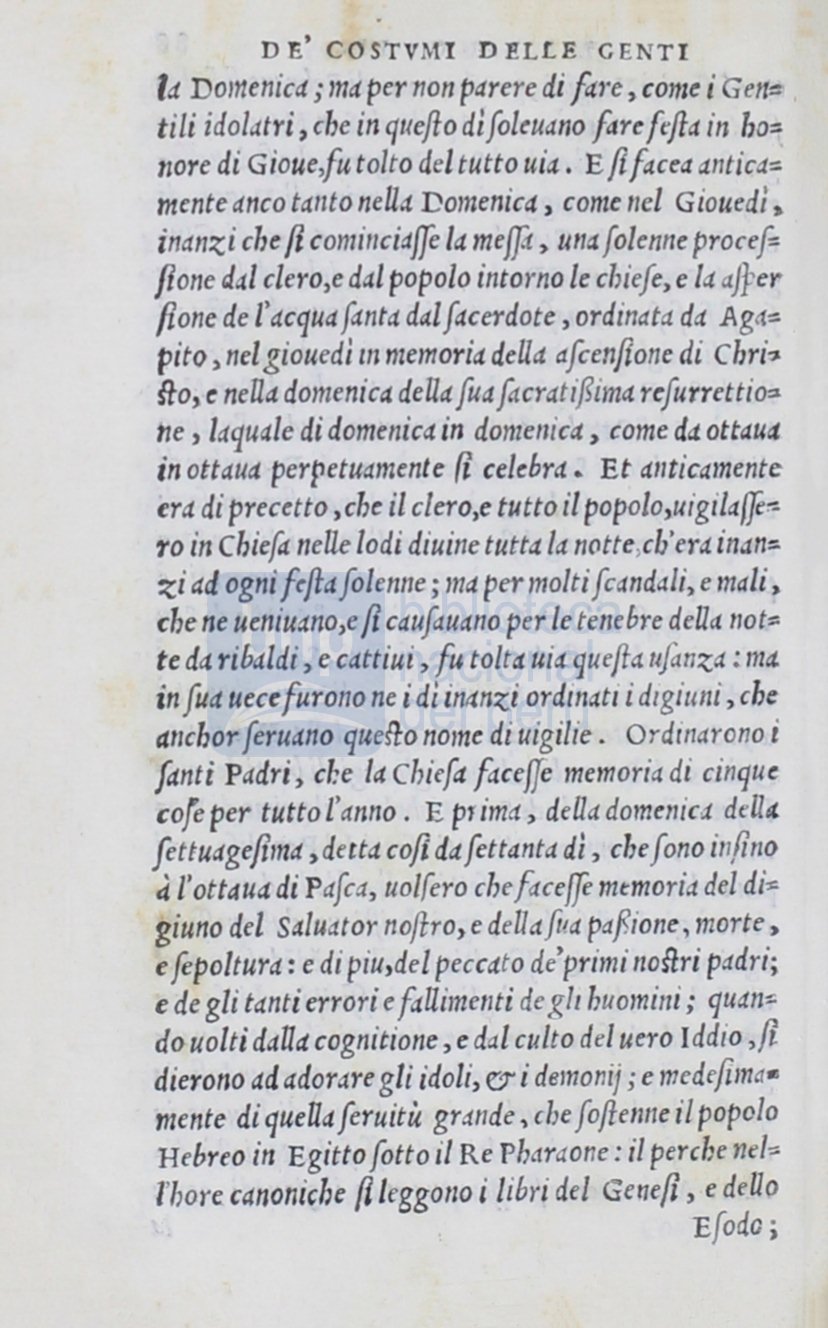 DE' COSTVMI DELLE GENTI
la Domenica; ma per non parere di fare, come i Gen=
tili idolatri, che in queſto dì ſoleuano fare feſta in ho=
nore di Gioue, fu tolto del tutto uia. E ſi facea antica=
mente anco tanto nella Domenica, come nel Giouedì,
inanzi che ſi cominciaſſe la meſſa, una ſolenne proceſ=
ſione dal clero, e dal popolo intorno le chieſe, e la aſper
ſione de l'acqua ſanta dal ſacerdote, ordinata da Aga=
pito, nel giouedì in memoria della aſcenſione di Chri=
ſto, e nella domenica della ſua ſacratißima reſurrettio=
ne, laquale di domenica in domenica, come da ottaua
in ottaua perpetuamente ſi celebra. Et anticamente
era di precetto, che il clero, e tutto il popolo, uigilaſſe=
ro in Chieſa nelle lodi diuine tutta la notte, ch'era inan=
zi ad ogni feſta ſolenne; ma per molti ſcandali, e mali,
che ne ueniuano, e ſi cauſauano per le tenebre della not=
te da ribaldi, e cattiui, fu tolta uia queſta uſanza: ma
in ſua uece furono ne i dì inanzi ordinati i digiuni, che
anchor ſeruano queſto nome di uigilie. Ordinarono i
ſanti Padri, che la Chieſa faceſſe memoria di cinque
coſe per tutto l'anno. E prima, della domenica della
ſettuageſima, detta coſi da ſettanta dì, che ſono inſino
à l'ottaua di Paſca, uolſero che faceſſe memoria del di=
giuno del Saluator noſtro, e della ſua paßione, morte,
e ſepoltura: e di piu, del peccato de' primi noſtri padri;
e de gli tanti errori e fallimenti de gli huomini; quan=
do uolti dalla cognitione, e dal culto del uero Iddio, ſi
dierono ad adorare gli idoli, & i demonij; e medeſima=
mente di quella ſeruitù grande, che ſoſtenne il popolo
Hebreo in Egitto ſotto il Re Pharaone: il perche nel=
l'hore canoniche ſi leggono i libri del Geneſi, e dello
Eſodo;
biblioteca
nacional
del perú